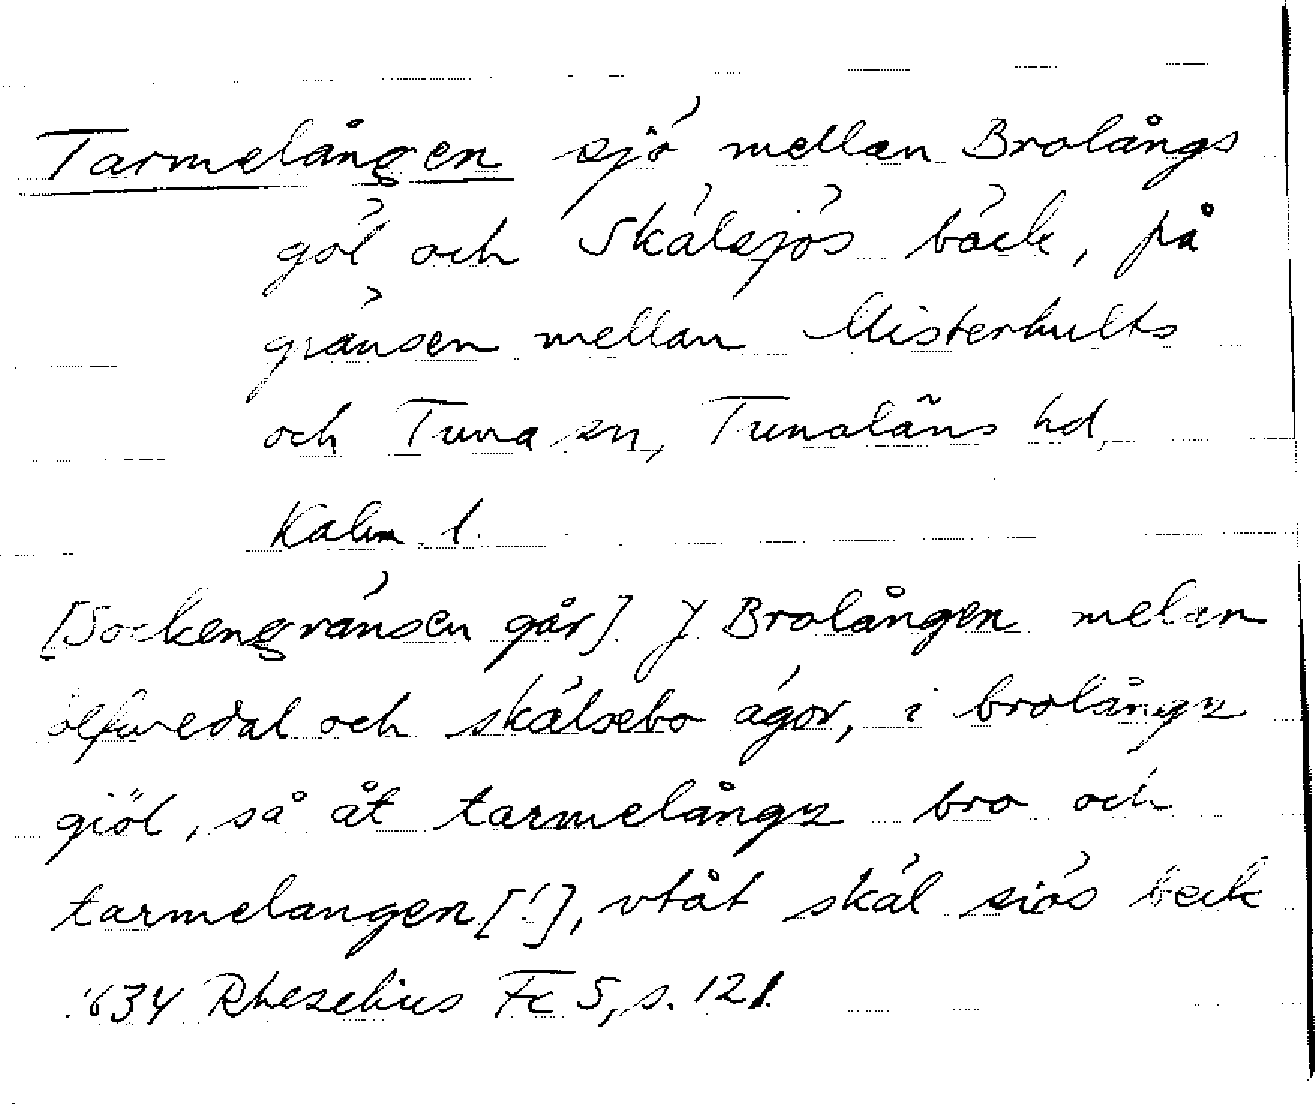 Tarmelången sjö mellan Brolångs
göl och Skälsjös bäck, på
gränsen mellan Misterhults
och Tuna sn, Tunaläns hd,
Kalm. l.
[Sockengränsen går] J Brolången melan
ölfwedal och skälsebo ägor, i brolångz
giöl, så åt tarmelångz bro och
tarmelangen [!], vtåt skäl siös beck
1634 Rhezelius Fc 5, s. 121.